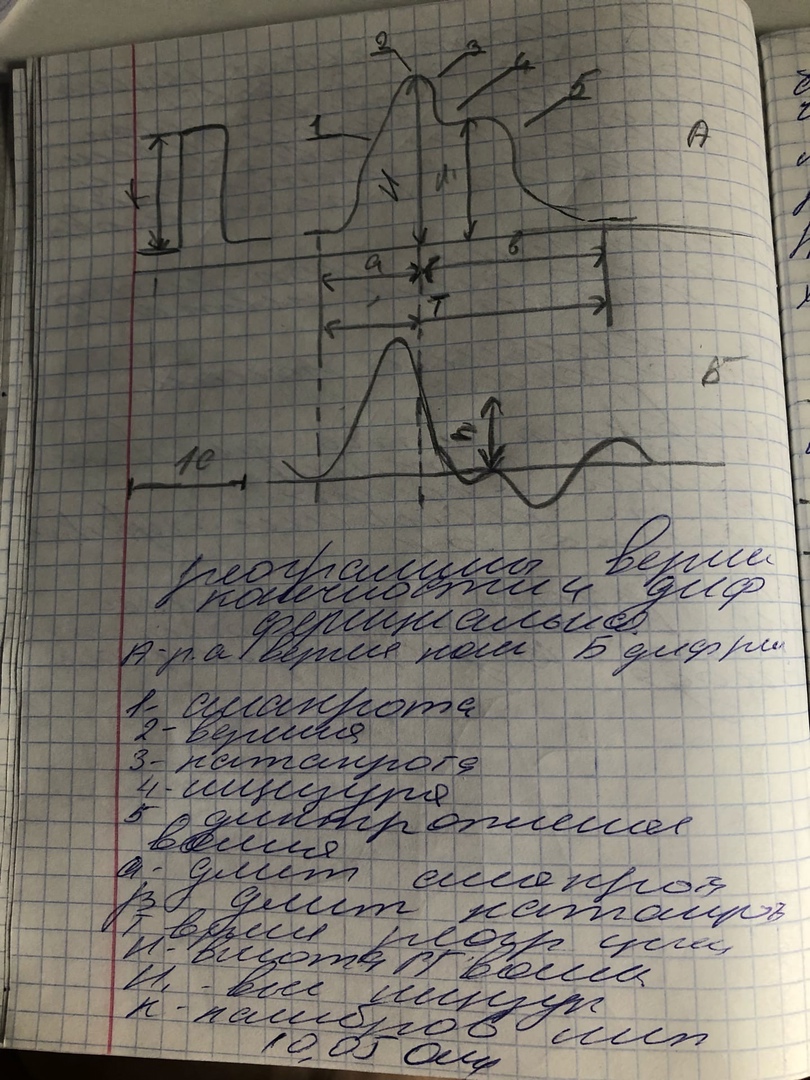 2 3 4 5
1
А
К
а
в
Т
Б
1с
реограммы верхн
конечности и диф
ференциальна
А- р.а верхне кон Б диф рм
1- анакрота
2- вершина
3- катакрота
4- инцизура
5 дикротическая
волна
а- длит анакрот
β длит катакр
Т время реогр цикл
Н- высота РГ волны
Н₁ - выс инцизур
К- калибров имп
10,05 Ом